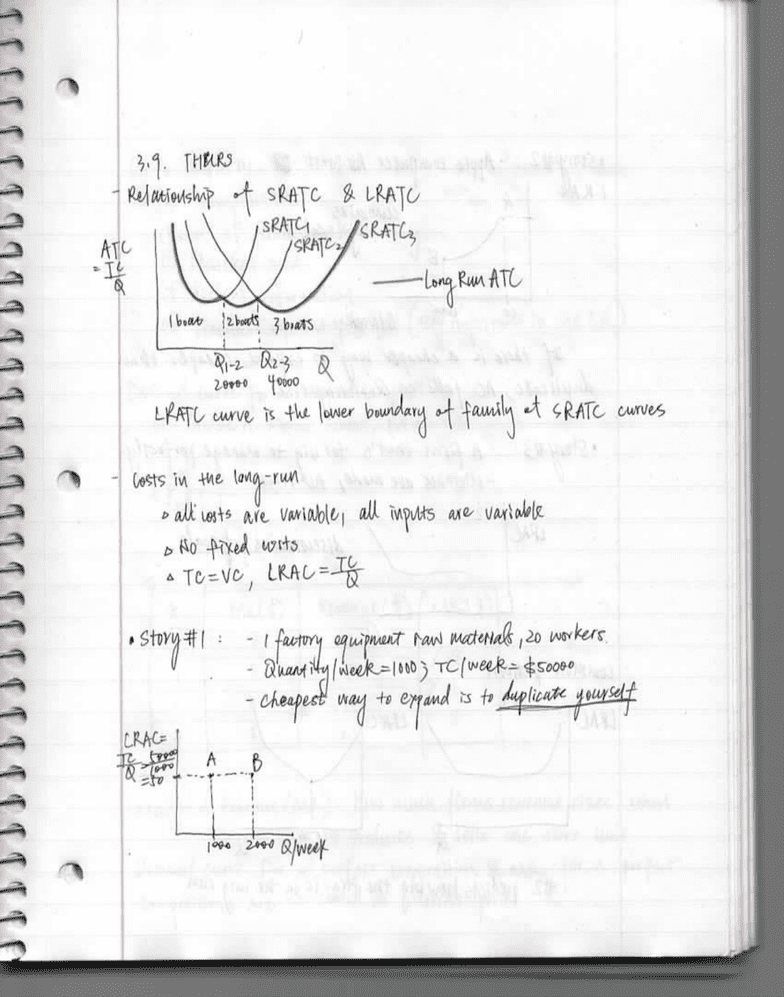 3.9. THURS
- Relationship of SRATC & LRATC
SRATC1
SRATC2
SRATC3
ATC
= TC
Q
Long Run ATC
1 boat
2 boats
3 boats
Q1-2
Q2-3
Q
20000
40000
LRATC curve is the lower boundary of family of SRATC curves
- Costs in the long-run
▵ all costs are variable, all inputs are variable
▵ No fixed costs
▵ TC=VC, LRAC = TC/Q
• Story #1 : - 1 factory equipment raw materials, 20 workers.
- Quantity/week=1000; TC/week=$50000
- cheapest way to expand is to duplicate yourself
LRAC=
TC/Q = 50000/1000
=50
A
B
1000
2000
Q/week